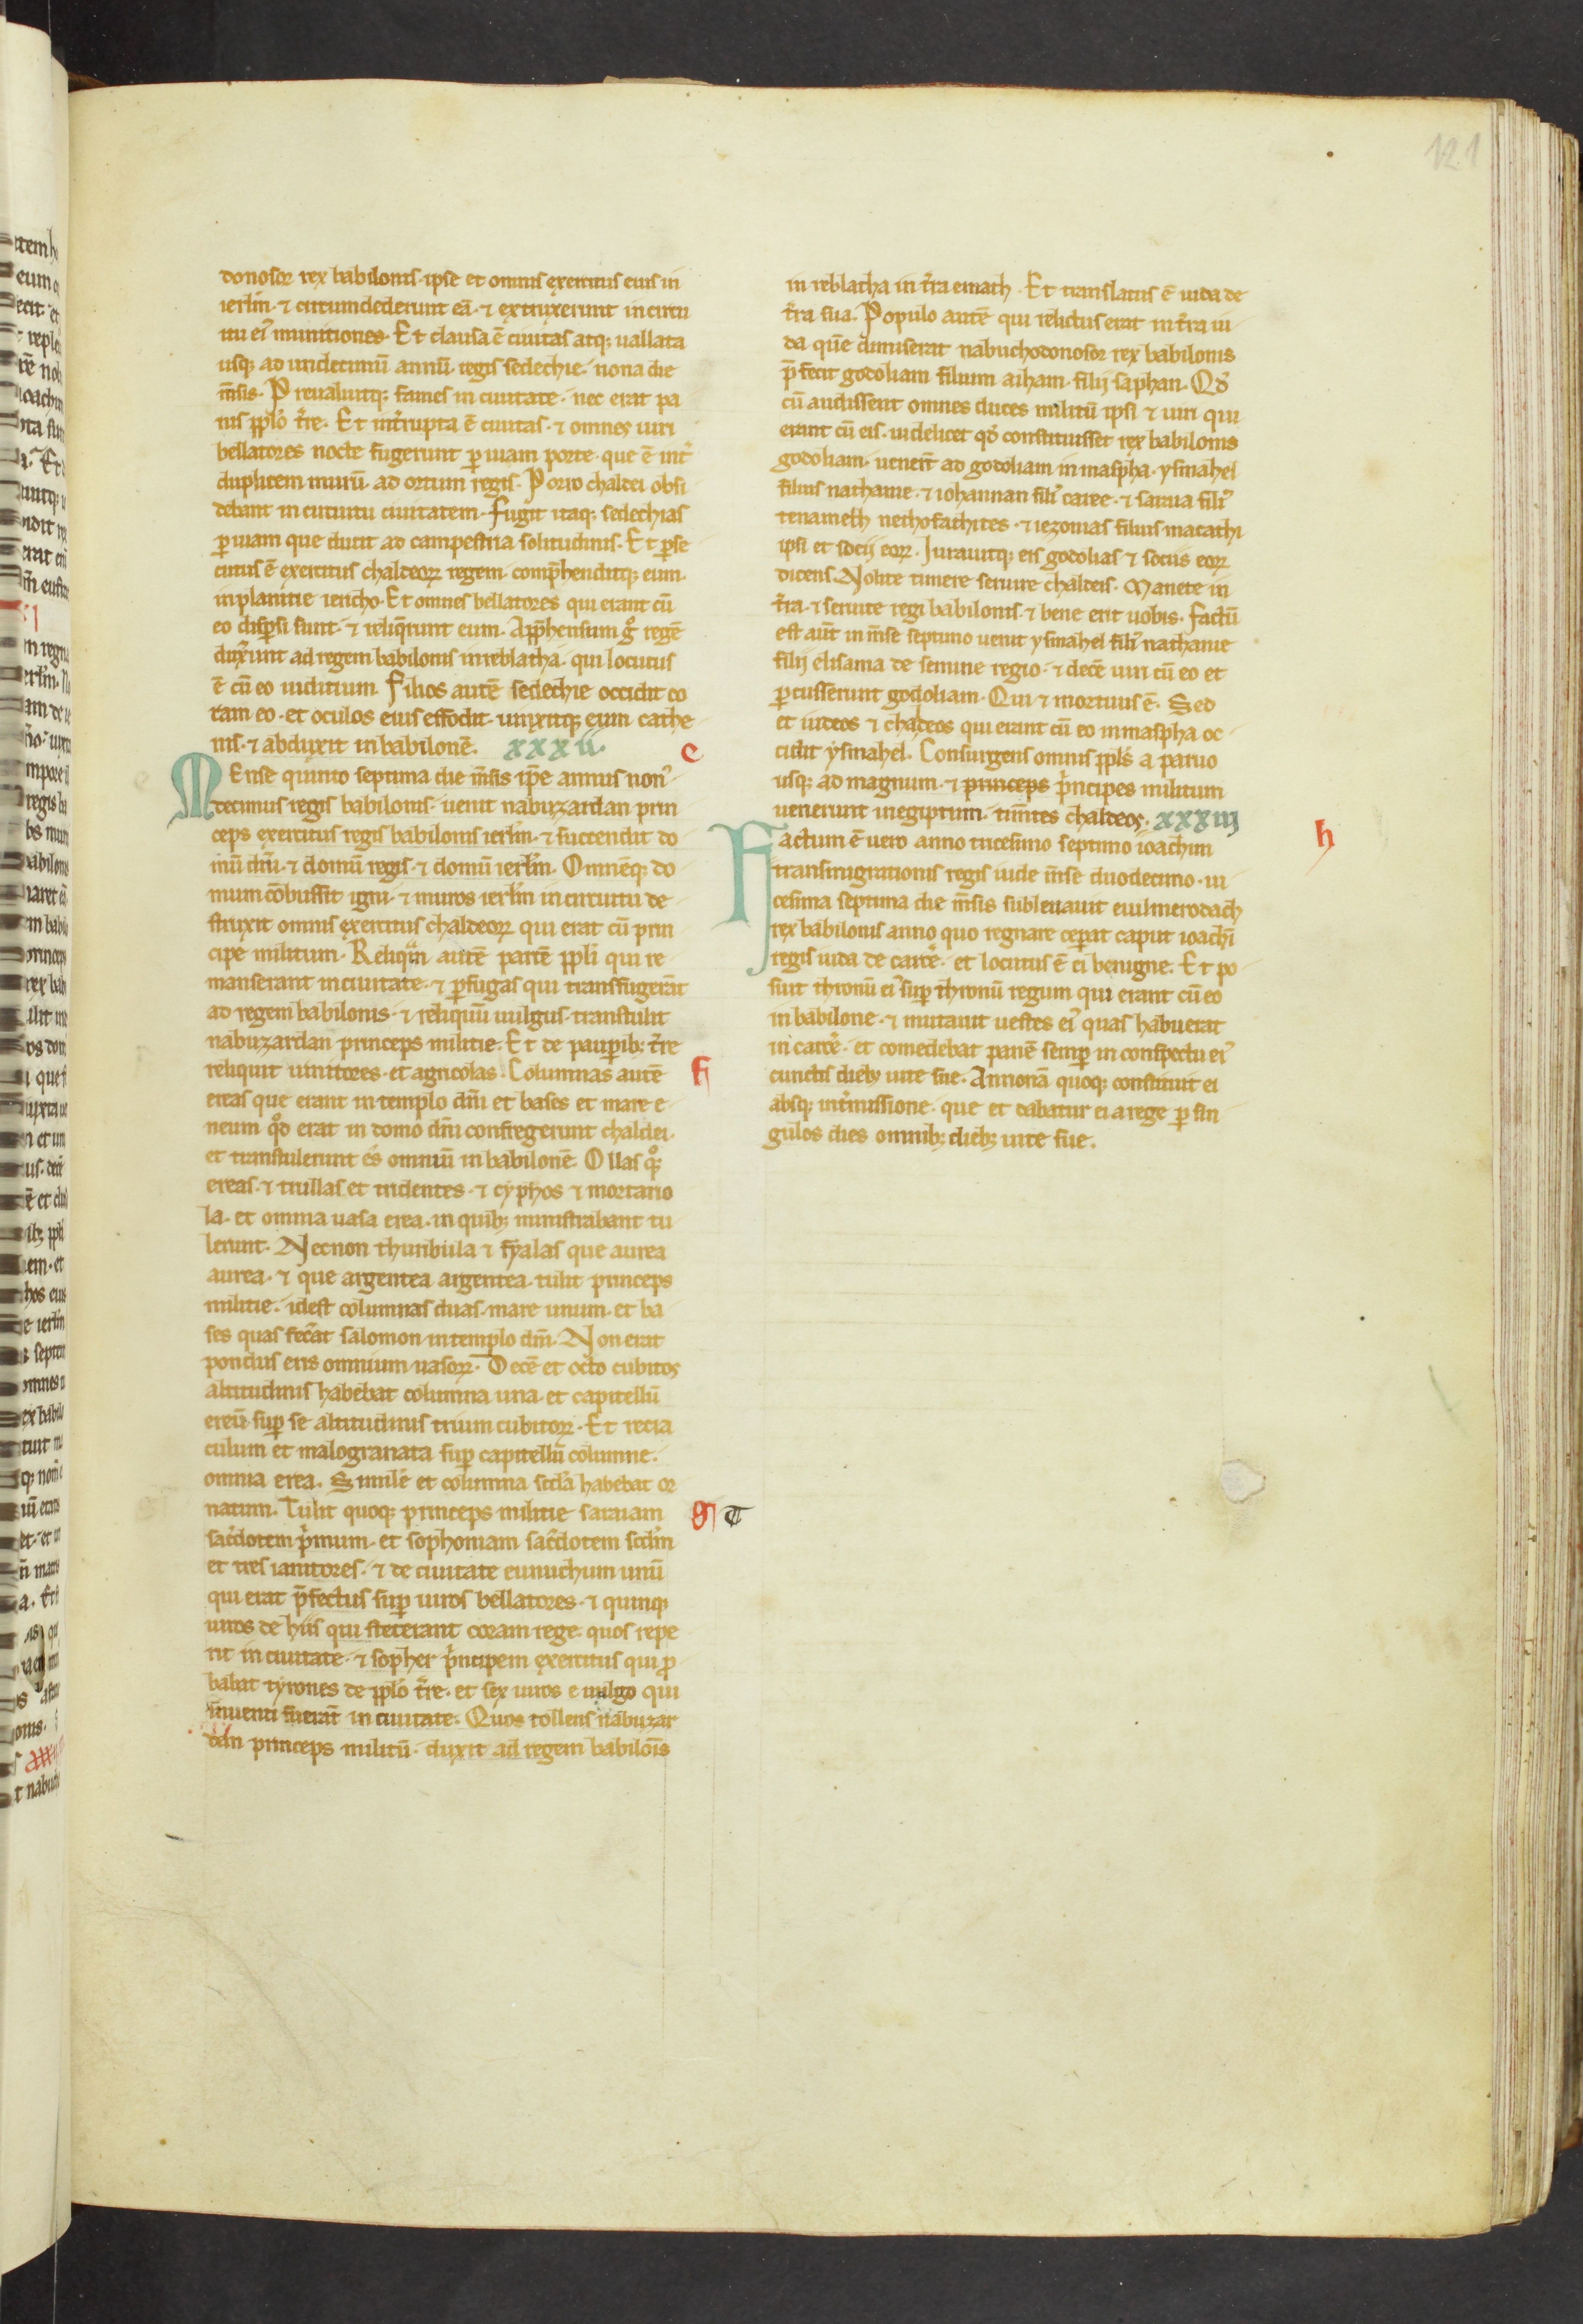 121
donosor rex babilonis· ipse et omnis exercitus eius in
ierlm̄· ⁊ circumdederunt eā· ⁊ extruxerunt in circu
itu ei᷒ munitiones· Et clausa ē ciuitas atq; uallata
usq; ad undecimū annū regis sedechie· nona die
m̄sis· Preualuitq; fames in ciuitate· nec erat pa
nis pplo t̄re· Et int̄rupta ē ciuitas· ⁊ omnes uiri
bellatores nocte fugerunt ꝑ uiam porte· que ē int̄
duplicem murū· ad ortum regis· Porro chaldei obsi
debant in circuitu ciuitatem· Fugit itaq; sedechias
ꝑ uiam que ducit ad campestria solitudinis· Et ꝑse
cutus ē exercitus chaldeoꝝ regem· comp̄henditq; eum·
in planitie iericho· Et omnes bellatores qui erant cū
eo disꝑsi sunt· ⁊ reliq̄runt eum· App̄hensum gͦ regē
duxerunt ad regem babilonis in reblatha· qui locutus
ē cū eo iudicium· Filios autē sedechie occidit co
ram eo· et oculos eius effodit· uinxitq; eum cathe
nis· ⁊ abduxit in babilonē· xxxii· e
MEnse quinto septima die m̄sis ip̄e annus non᷒
decimus regis babilonis· uenit nabuzardan prin
ceps exercitus regis babilonis ierlm̄· ⁊ succendit do
mū dn̄i· ⁊ domū regis· ⁊ domū ierlm̄· Omnēq; do
mum cōbussit igni· ⁊ muros ierlm̄ in circuitu de
struxit omnis exercitus chaldeoꝝ qui erat cū prin
cipe militum· Reliquā autē partē ppli qui re
manserant in ciuitate· ⁊ ꝑfugas qui transfugerāt
ad regem babilonis· ⁊ reliquū uulgus· transtulit
nabuzardan princeps militie· Et de pauꝑib; t̄re
reliquit uinitores· et agricolas· Columnas autē f
ereas que erant in templo dn̄i et bases et mare e
neum qͦd erat in domo dn̄i confregerunt chaldei·
et transtulerunt es omniū in babilonē· Ollas qͦ;
ereas· ⁊ trullas et tridentes· ⁊ cyphos ⁊ mortario
la· et omnia uasa erea· in quib; ministrabant tu
lerunt· Necnon thuribula ⁊ fyalas que aurea
aurea· ⁊ que argentea argentea· tulit princeps
militie· idest columnas duas· mare unum· et ba
ses quas fec̄at salomon in templo dn̄i· Non erat
pondus eris omnium uasoꝝ· Decē et octo cubitos
altitudinis habebat columna una· et capitellū
ereū suꝑ se altitudinis trium cubitoꝝ· Et retia
culum et malogranata suꝑ capitellū columne·
omnia erea· Similē et columna scd̄a habebat or
natum· Tulit quoq; princeps militie saraiam g T
sac̄dotem p̄mum· et sophoniam sac̄dotem scd̄m
et tres ianitores· ⁊ de ciuitate eunuchum unū
qui erat p̄fectus suꝑ uiros bellatores· ⁊ quinq;
uiros de hiis qui steterant coram rege· quos repe
rit in ciuitate· ⁊ sopher p̄ncipem exercitus qui ꝓ
babat tyrones de pplo t̄re· et sex uiros e uulgo qui
inuenti fuerāt in ciuitate· Quos tollens nabuzar
dan princeps militū· duxit ad regem babilōis
in reblatha in t̄ra emath· Et translatus ē iuda de
t̄ra sua· Populo autē qui relictus erat in t̄ra iu
da quē dimiserat nabuchodonosor rex babilonis
p̄fecit godoliam filium aiham· filij saphan· Qd̄
cū audissent omnes duces militū ipsi ⁊ uiri qui
erant cū eis· uidelicet qd̄ constituisset rex babilonis
godoliam· uener̄t ad godoliam in maspha· ysmahel
filius nathanie· ⁊ iohannan fili᷒ caree· ⁊ saraia fili᷒
tenameth nethofathites· ⁊ iezonias filius macathi
ipsi et socij eoꝝ· Iurauitq; eis godolias ⁊ sociis eoꝝ
dicens Nolite timere seruire chaldeis· Manete in
t̄ra· ⁊ seruite regi babilonis· ⁊ bene erit uobis· Factū
est aūt in m̄se septimo uenit ysmahel fili᷒ nathanie
filij elisama de semine regio· ⁊ decē uiri cū eo et
ꝑcusserunt godoliam· Qui ⁊ mortuus ē· Sed
et iudeos ⁊ chaldeos qui erant cū eo in maspha oc
cidit ysmahel· Consurgens omnis ppls a paruo
usq; ad magnum· ⁊ princeps p̄ncipes militum
uenerunt in egiptum· tim̄tes chaldeos· xxxiij
Factum ē uero anno tricesimo septimo ioachim h
transmigrationis regis iude m̄se duodecimo· ui
cesima septima die m̄sis subleuauit euilmerodach
rex babilonis anno quo regnare ceꝑat caput ioachī
regis iuda de carc̄e· et locutus ē ei benigne· Et po
suit thronū ei᷒ suꝑ thronū regum qui erant cū eo
in babilone· ⁊ mutauit uestes ei᷒ quas habuerat
in carc̄e· et comedebat panē semꝑ in conspectu ei᷒
cunctis dieb; uite sue· Annonā quoq; constituit ei
absq; int̄missione· que et dabatur ei a rege ꝑ sin
gulos dies omnib; dieb; uite sue·